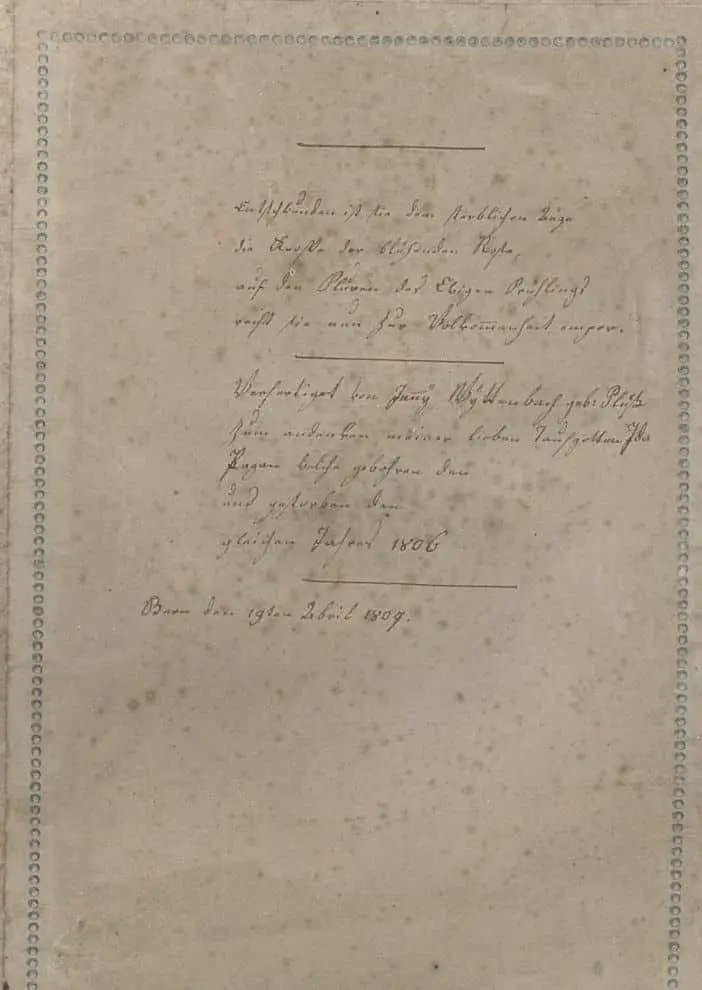 Entschbunden ist sie dem sterblichen Auge
die Knospe der blühenden Rose,
auf den Fluren des Ewigen Frühlings
reift sie nun zur Volkommenheit empor.
Verfertiget von Jenny Wÿttenbach geb:
zum andenken meiner lieben Taufgotten Ida
Pagan welche gebohren den
und gestorben den
gleichen Jahres 1806
Bern den 19ten Abril 1807.